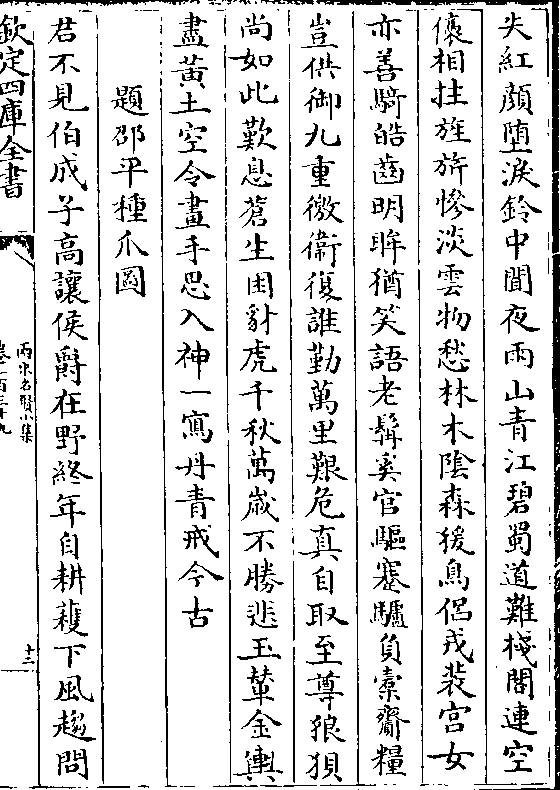 失紅顔堕淚鈴中聞夜雨山青江碧蜀道難棧閣連空
儴相拄旌旂慘淡雲物愁林木陰森猨鳥侣戎裝宫女
亦善騎皓齒明眸猶笑語老髯奚官驅蹇驢負橐齎糧
豈供御九重徼衞復誰勤萬里艱危真自取至尊狼狽
尚如此歎息蒼生困豺虎千秋萬歲不勝悲玉輦金輿
盡黄土空令畫手思入神一寫丹青戒今古
題邵平種瓜圖
君不見伯成子高讓侯爵在野終年自耕穫下風趨問
欽定四庫全書
兩宋名賢小集
卷一百三十九
十三